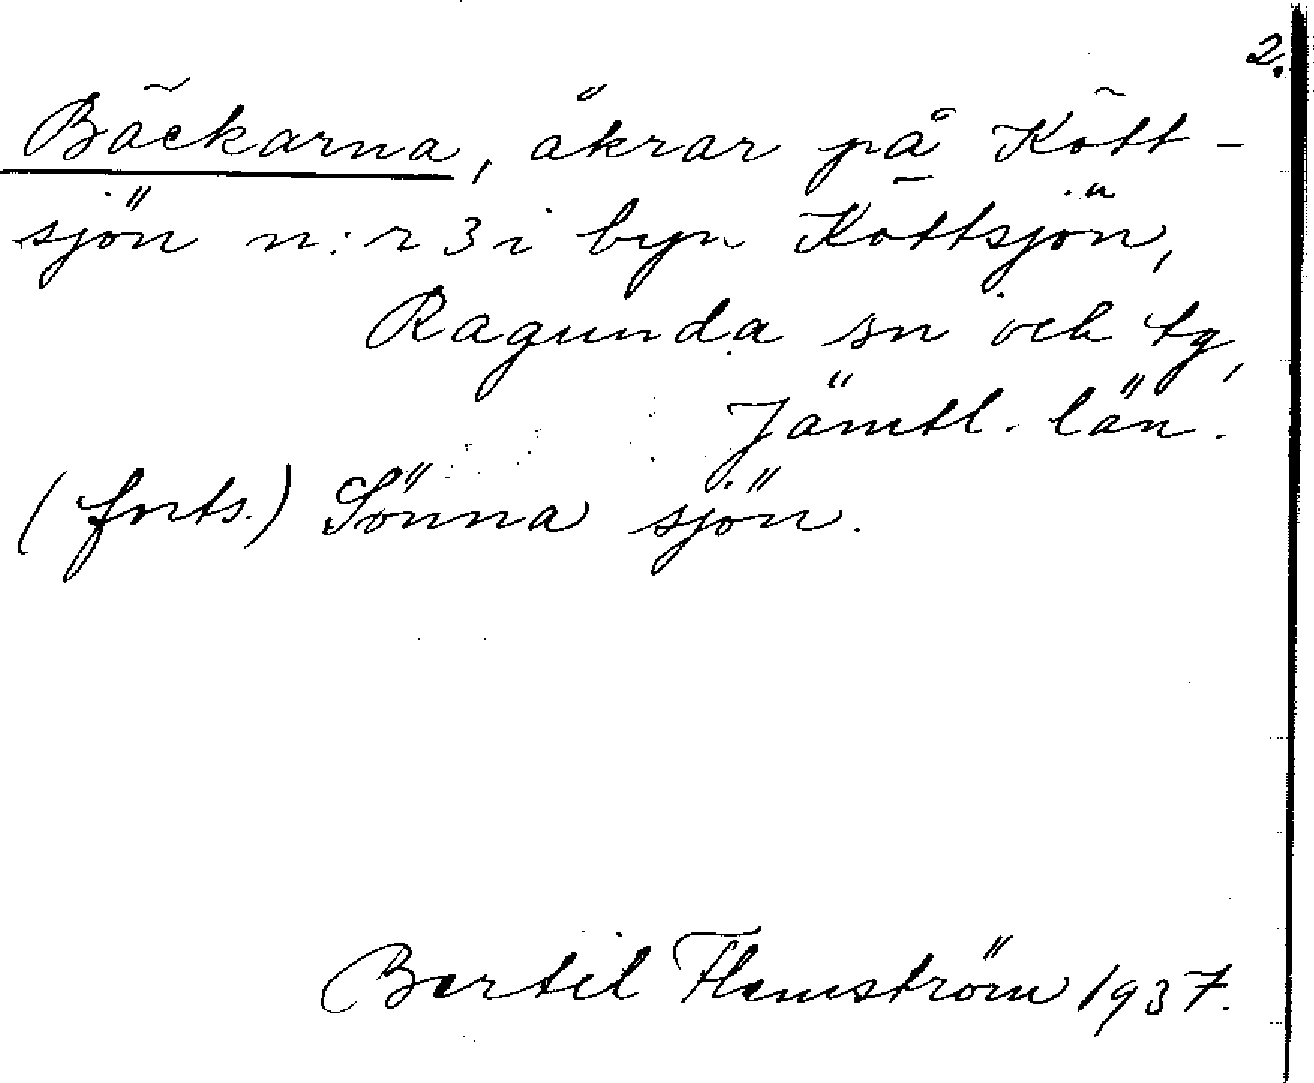 2.
Bäckarna, åkrar på Kött-
sjön n:r 3 i byn Köttsjön,
Ragunda sn och tg,
Jämtl. län.
(forts.) Sönna sjön.
Bertil Flemström 1937.